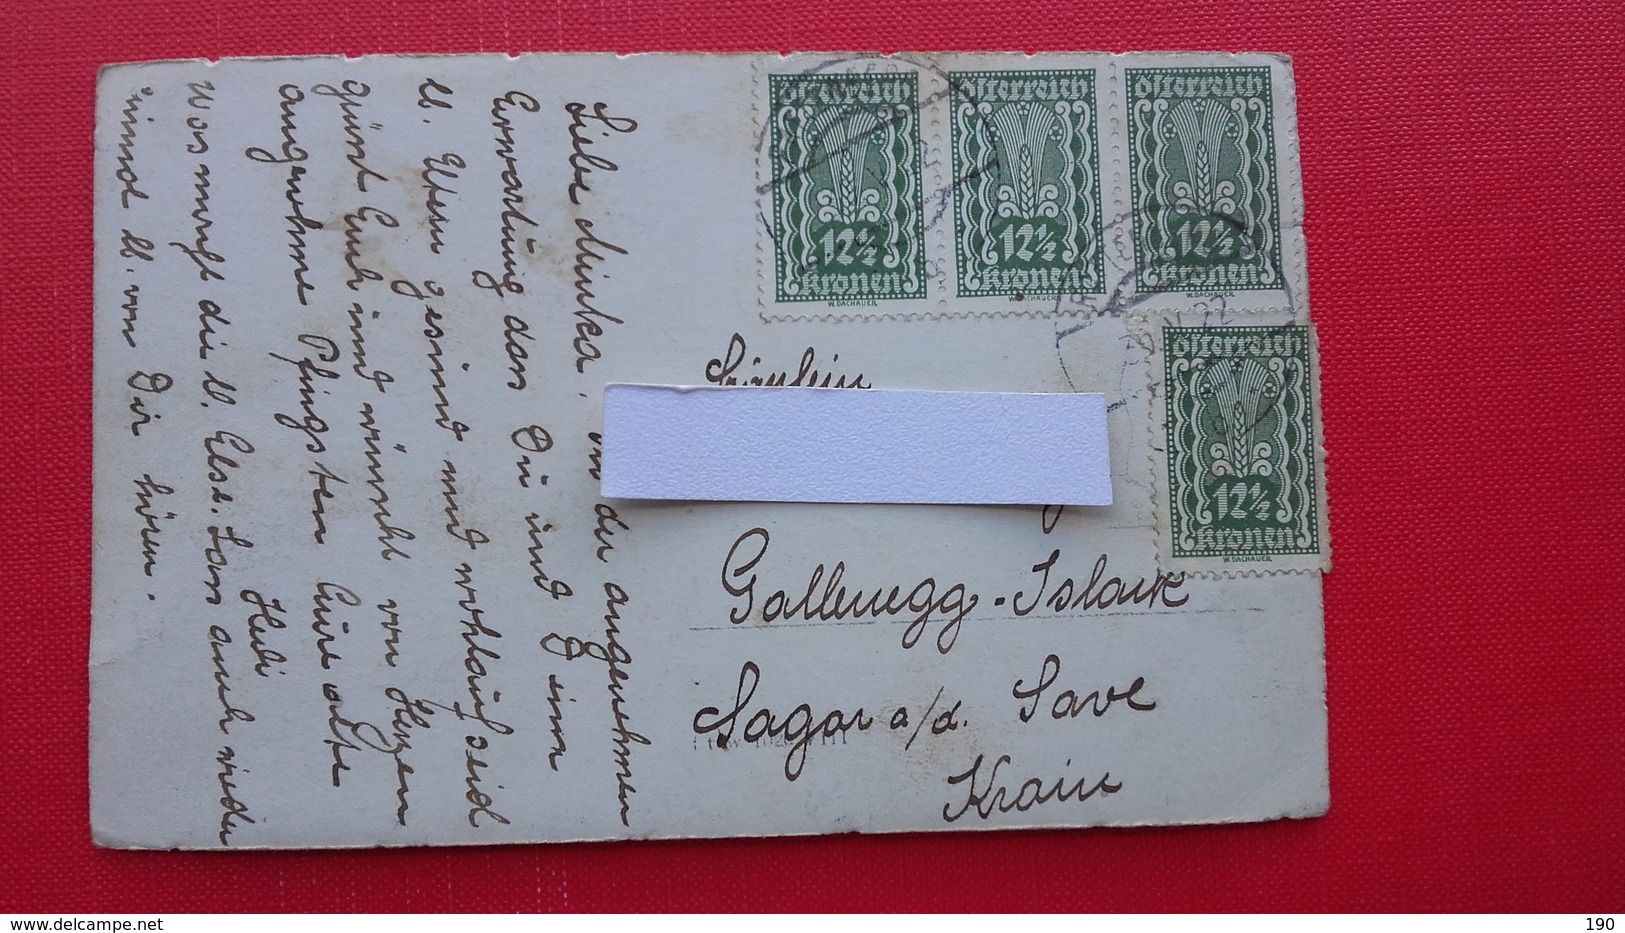 Liebe Minka! In der angenehmen
Erwartung das Du und
ll. Eltern gesind und wohlauf seid
günd Euch und wünscht von Herzen
angenehme Pfingsten Eure alte
Heli
Was macht die ll. Else. Lass auch wieder
einmal ll. von Dir hören.
Österreich
12½
Kronen
W. DACHAUER
Österreich
12½
Kronen
W. DACHAUER
Österreich
12½
Kronen
W. DACHAUER
Österreich
12½
Kronen
W. DACHAUER
22
Fräulein
Gallenegg - Islack
Sagor a/d. Save
Krain
delcampe.net
190